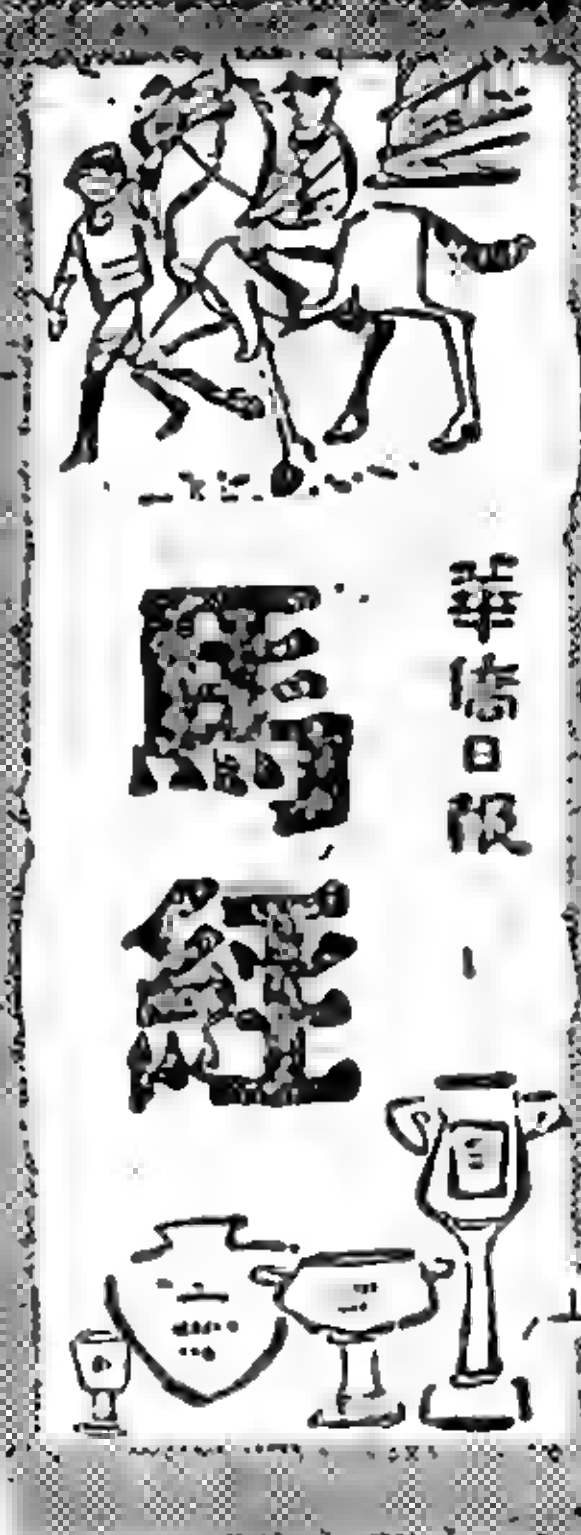 華僑日報
馬經